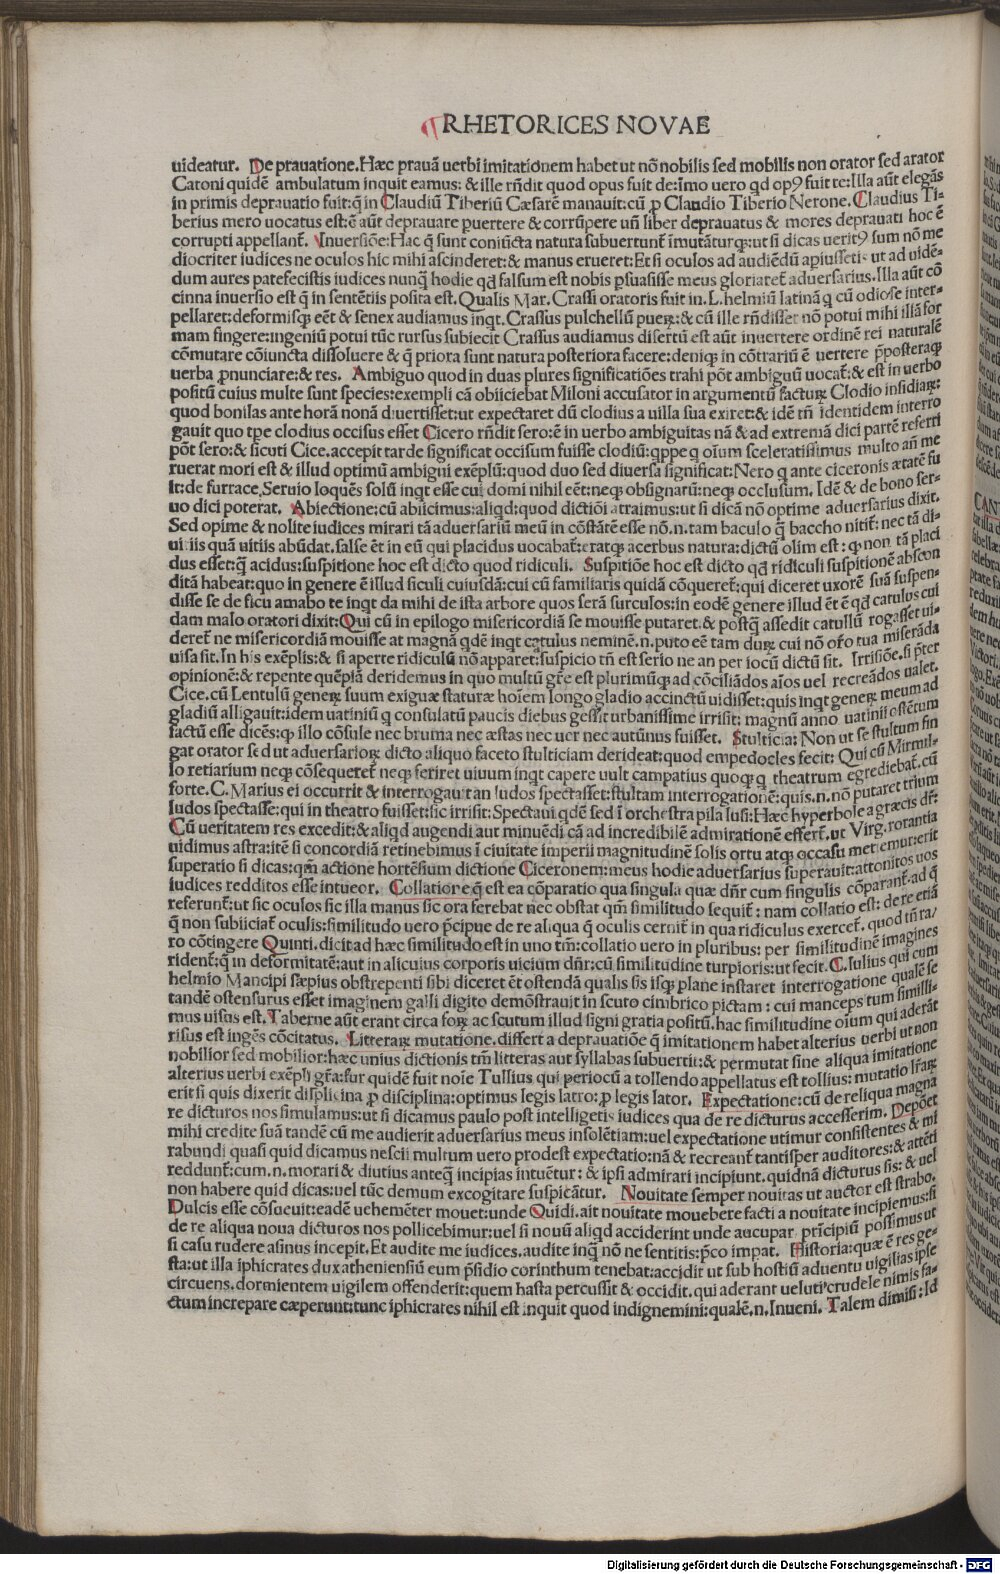 ¶RHETORICES NOVAE
uideatur. De prauatione. Hæc prauã uerbi imitationem habet ut nõ nobilis sed mobilis non orator sed arator
Catoni quidẽ ambulatum inquit eamus: & ille rñdit quod opus fuit de: imo uero qd opꝯ fuit te: Illa aũt elegãs
in primis deprauatio fuit: q̃ in Claudiũ Tiberiũ Cæsarẽ manauit: cũ ꝓ Claudio Tiberio Nerone. Claudius Ti-
berius mero uocatus est: ẽ aũt deprauare puertere & corrũpere uñ liber deprauatus & mores deprauati hoc ẽ
corrupti appellant̃. Inuersiõe: Hac q̃ sunt coniũcta natura subuertunt̃ imutãturqꝫ: ut si dicas ueritꝯ sum nõ me
diocriter iudices ne oculos hic mihi ascinderet: & manus erueret: Et si oculos ad audiẽdũ apiussetis ut ad uidẽ-
dum aures patefecistis iudices nunq̃ hodie qd falsum est nobis psuasisse meus gloriaret̃ aduersarius. Illa aũt cõ
cinna inuersio est q̃ in sentẽtiis posita est. Qualis Mar. Crassi oratoris fuit in. L. helmiũ latinã q cũ odiose inter-
pellaret: deformisqꝫ eẽt & senex audiamus inqt. Crassus pulchellũ pueꝝ: & cũ ille rñdisset nõ potui mihi illã for
mam fingere: ingeniũ potui tũc rursus subiecit Crassus audiamus disertũ est aũt inuertere ordinẽ rei naturalẽ
cõmutare cõiuncta dissoluere & q̃ priora sunt natura posteriora facere: deniqꝫ in cõtrariũ ẽ uertere p̃posteraqꝫ
uerba ꝓnunciare: & res. Ambiguo quod in duas plures significatiões trahi põt ambiguũ uocat̃: & est in uerbo
positũ cuius multe sunt species: exempli cã obiiciebat Miloni accusator in argumentũ factuꝝ Clodio insidiaꝝ:
quod bonilas ante horã nonã diuertisset: ut expectaret dũ clodius a uilla sua exiret: & idẽ tñ identidem interro
gauit quo tpe clodius occisus esset Cicero rñdit sero: ẽ in uerbo ambiguitas nã & ad extremã dici partẽ referri
põt sero: & sicuti Cice. accepit tarde significat occisum fuisse clodiũ: qppe q oĩum sceleratissimus multo añ me
ruerat mori est & illud optimũ ambigui exẽplũ: quod duo sed diuersa significat: Nero q ante ciceronis ætatẽ fu
it: de furrace, Seruio loquẽs solũ inqt esse cui domi nihil eẽt: neqꝫ obsignatũ: neqꝫ occlusum. Idẽ & de bono ser-
uo dici poterat. Abiectione: cũ abiicimus: aliqd: quod dictiõi atraimus: ut si dicã nõ optime aduersarius dixit.
Sed opime & nolite iudices mirari tã aduersariũ meũ in cõstãtẽ esse nõ. n. tam baculo q̃ baccho nitit̃: nec tã di-
uitiis quã uitiis abũdat. salse ẽt in eũ qui placidus uocabat̃: eratqꝫ acerbus natura: dictũ olim est: ꝙ non tã placi
dus esset: q̃ acidus: suspitione hoc est dicto quod ridiculi. Suspitiõe hoc est dicto qd ridiculi suspitionẽ abscon
ditã habeat: quo in genere ẽ illud siculi cuiusdã: cui cũ familiaris quidã cõqueret̃: qui diceret uxorẽ suã suspen-
disse se de ficu amabo te inqt da mihi de ista arbore quos serã surculos: in eodẽ genere illud ẽt ẽ qd catulus cui
dam malo oratori dixit: Qui cũ in epilogo misericordiã se mouisse putaret. & postq̃ assedit catullũ rogasset ui-
deret̃ ne misericordiã mouisse at magnã qdẽ inqt catulus neminẽ. n. puto eẽ tam duꝝ cui nõ or̃o tua miserãda
uisa sit. In his exẽplis: & si aperte ridiculũ nõ apparet: suspicio tñ est serio ne an per iocũ dictũ sit. Irrisiõe. si p̃ter
opinionẽ: & repente quẽpiã deridemus in quo multũ gr̃e est plurimũqꝫ ad cõciliãdos aĩos uel recreãdos ualet.
Cice. cũ Lentulũ geneꝝ suum exiguæ staturæ hoĩem longo gladio accinctũ uidisset: quis inqt geneꝝ meum ad
gladiũ alligauit: idem uatiniũ q consulatũ paucis diebus gessit urbanissime irrisit: magnũ anno uatinii ostẽtum
factũ esse dicẽs: ꝙ illo cõsule nec bruma nec æstas nec uer nec autũnus fuisset. Stulticia: Non ut se stultum fin
gat orator sed ut aduersarioꝝ dicto aliquo faceto stulticiam derideat: quod empedocles fecit: Qui cũ Mirmil-
lo retiarium neqꝫ cõsequeret̃ neqꝫ feriret uiuum inqt capere uult campatius quoqꝫ q theatrum egrediebat̃. cũ
forte. C. Marius ei occurrit & interrogaut an ludos spectasset: stultam interrogationẽ: quis. n. nõ putaret trium
ludos spectasse: qui in theatro fuisset: sic irrisit: Spectaui qdẽ sed ĩ orchestra pila lusi: Hæc hyperbole a græcis dr̃:
Cũ ueritatem res excedit: & aliqd augendi aut minuẽdi cã ad incredibilẽ admirationẽ effert̃. ut Virg. rorantia
uidimus astra: itẽ si concordiã retinebimus ĩ ciuitate imperii magnitudinẽ solis ortu atqꝫ occasu metiemur: erit
superatio si dicas: qm̃ actione hortẽsium dictione Ciceronem: meus hodie aduersarius superauit: attonitos uos
iudices redditos esse intueor. Collatiore q̃ est ea cõparatio qua singula quæ dñr cum singulis cõparant̃: ad q̃
referunt̃: ut sic oculos sic illa manus sic ora ferebat nec obstat qm̃ similitudo sequit̃: nam collatio est: de re etiã
q̃ non subiiciat̃ oculis: similitudo uero p̃cipue de re aliqua q̃ oculis cernit̃ in qua ridiculus exercet̃. quod tñ ra/
ro cõtingere Quinti. dicit ad hæc similitudo est in uno tm̃: collatio uero in pluribus: per similitudinẽ imagines
rident̃: q̃ in deformitatẽ: aut in alicuius corporis uicium dñr: cũ similitudine turpioris: ut fecit. C. Iulius qui cum
helmio Mancipi sæpius obstrepenti sibi diceret ẽt ostendã qualis sis isqꝫ plane instaret interrogatione qualẽ se
tandẽ ostensurus esset imaginem galli digito demõstrauit in scuto cimbrico pictam: cui manceps tum simillis
mus uisus est. Taberne aũt erant circa foꝝ ac scutum illud signi gratia positũ. hac similitudine oĩum qui aderãt
risus est ingẽs cõcitatus. Litteraꝝ mutatione. differt a deprauatiõe q̃ imitationem habet alterius uerbi ut non
nobilior sed mobilior: hæc unius dictionis tm̃ litteras aut syllabas subuertit: & permutat sine aliqua imitatione
alterius uerbi exẽpli gr̃a: fur quidẽ fuit noĩe Tullius qui periocũ a tollendo appellatus est tollius: mutatio lr̃aꝝ
erit si quis dixerit displicina ꝓ disciplina: optimus legis latro: ꝓ legis lator. Expectatione: cũ de reliqua magna
re dicturos nos simulamus: ut si dicamus paulo post intelligetis iudices qua de re dicturus accesserim. Depõet
mihi credite suã tandẽ cũ me audierit aduersarius meus insolẽtiam: uel expectatione utimur consistentes & mi
rabundi quasi quid dicamus nescii multum uero prodest expectatio: nã & recreant̃ tantisper auditores: & attẽti
reddunt̃: cum. n. morari & diutius anteq̃ incipias intuẽtur: & ipsi admirari incipiunt. quidnã dicturus sis: & uel
non habere quid dicas: uel tũc demum excogitare suspicãtur. Nouitate semper nouitas ut auctor est strabo.
Dulcis esse cõsueuit: eadẽ uehemẽter mouet: unde Quidi. ait nouitate mouebere facti a nouitate incipiemus: si
de re aliqua noua dicturos nos pollicebimur: uel si nouũ aliqd acciderint unde aucupar. pr̃icipiũ possimus ut
si casu rudere asinus incepit. Et audite me iudices. audite inq̃ nõ ne sentitis: p̃co impat. Historia: quæ ẽ res ge-
sta: ut illa iphicrates dux atheniensiũ eum p̃sidio corinthum tenebat: accidit ut sub hostiũ aduentu uigilias ipse
circuens. dormientem uigilem offenderit: quem hasta percussit & occidit. qui aderant ueluti crudele nimis fa-
ctum increpare cæperunt: tunc iphicrates nihil est inquit quod indignemini: qualẽ. n. Inueni. Talem dimisi: Id
Digitalisierung gefördert durch die Deutsche Forschungsgemeinschaft - DFG